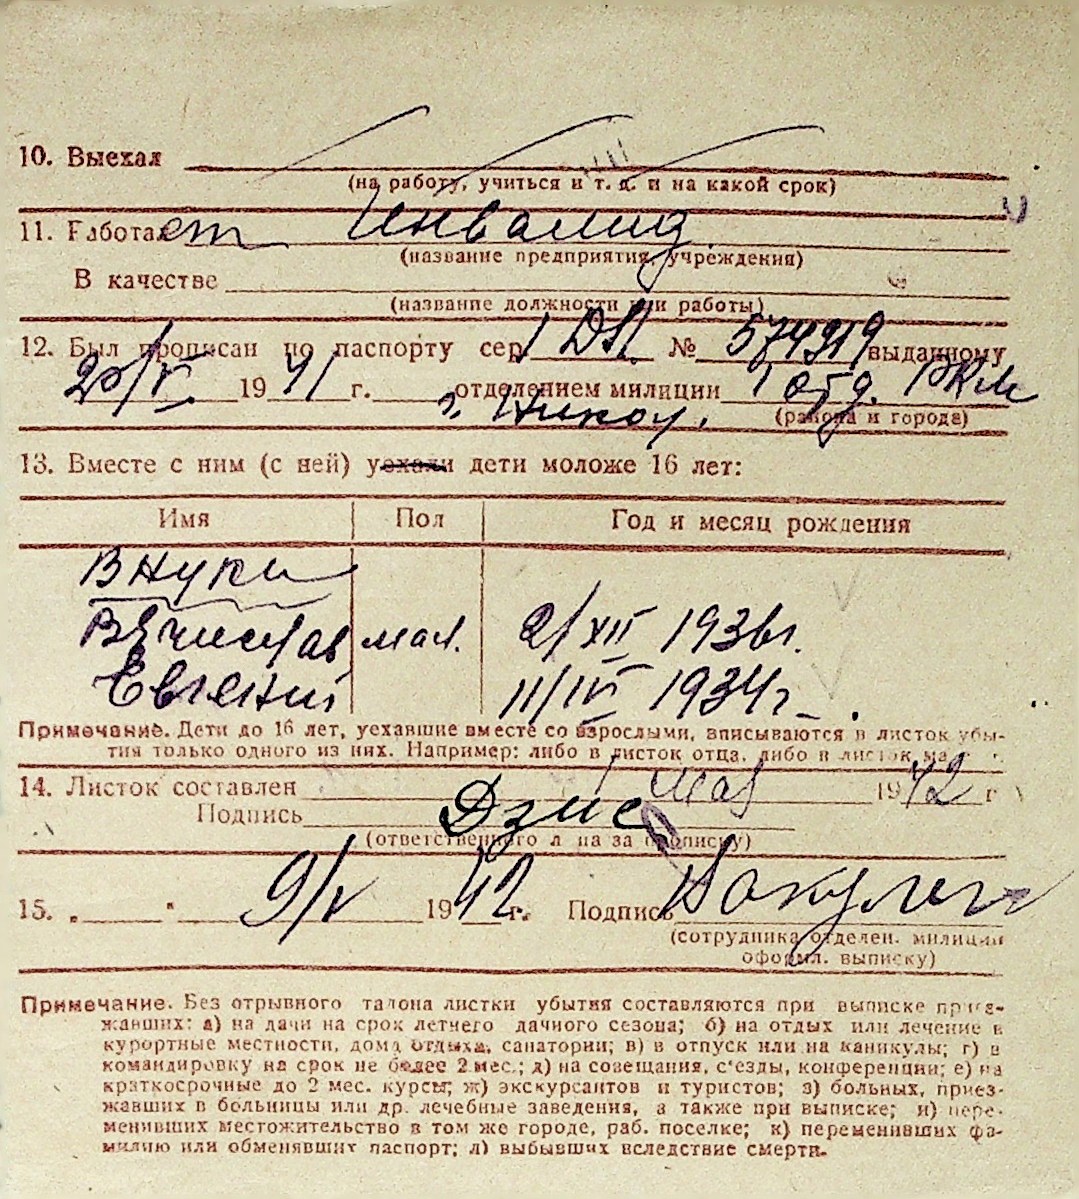 10. Выехал
(на работу, учиться и т. д. и на какой срок)
11. Работает Инвалид
(название предприятия, учреждения)
В качестве
(название должности или работы)
12. Был прописан по паспорту сер. № 574919 выданному
20/V 1941 г. отделением милиции 1 отд. РКМ
(района и города)
г. Никол.
13. Вместе с ним (с ней) уехали дети моложе 16 лет:
Имя Пол Год и месяц рождения
Внуки
Вячислав мал. 2/XII 1936 г.
Евгений 11/IV 1934 г.
Примечание. Дети до 16 лет, уехавшие вместе со взрослыми, вписываются в листок убы-
тия только одного из них. Например: либо в листок отца, либо в листок
14. Листок составлен 1 мая 1942 г
Подпись
(ответственного лица за прописку)
15. „ " 9/V 1942 г. Подпись
(сотрудника отделен. милиции
оформл. выписку)
Примечание. Без отрывного талона листки убытия составляются при выписке приез-
жавших: а) на дачи на срок летнего дачного сезона; б) на отдых или лечение в
курортные местности, дома отдыха, санатории; в) в отпуск или на каникулы; г) в
командировку на срок не более 2 мес.; д) на совещания, с'езды, конференции; е) на
краткосрочные до 2 мес. курсы; ж) экскурсантов и туристов; з) больных, приез-
жавших в больницы или др. лечебные заведения, а также при выписке; и) пере-
менивших местожительство в том же городе, раб. поселке; к) переменивших фа-
милию или обменявших паспорт; л) выбывших вследствие смерти.